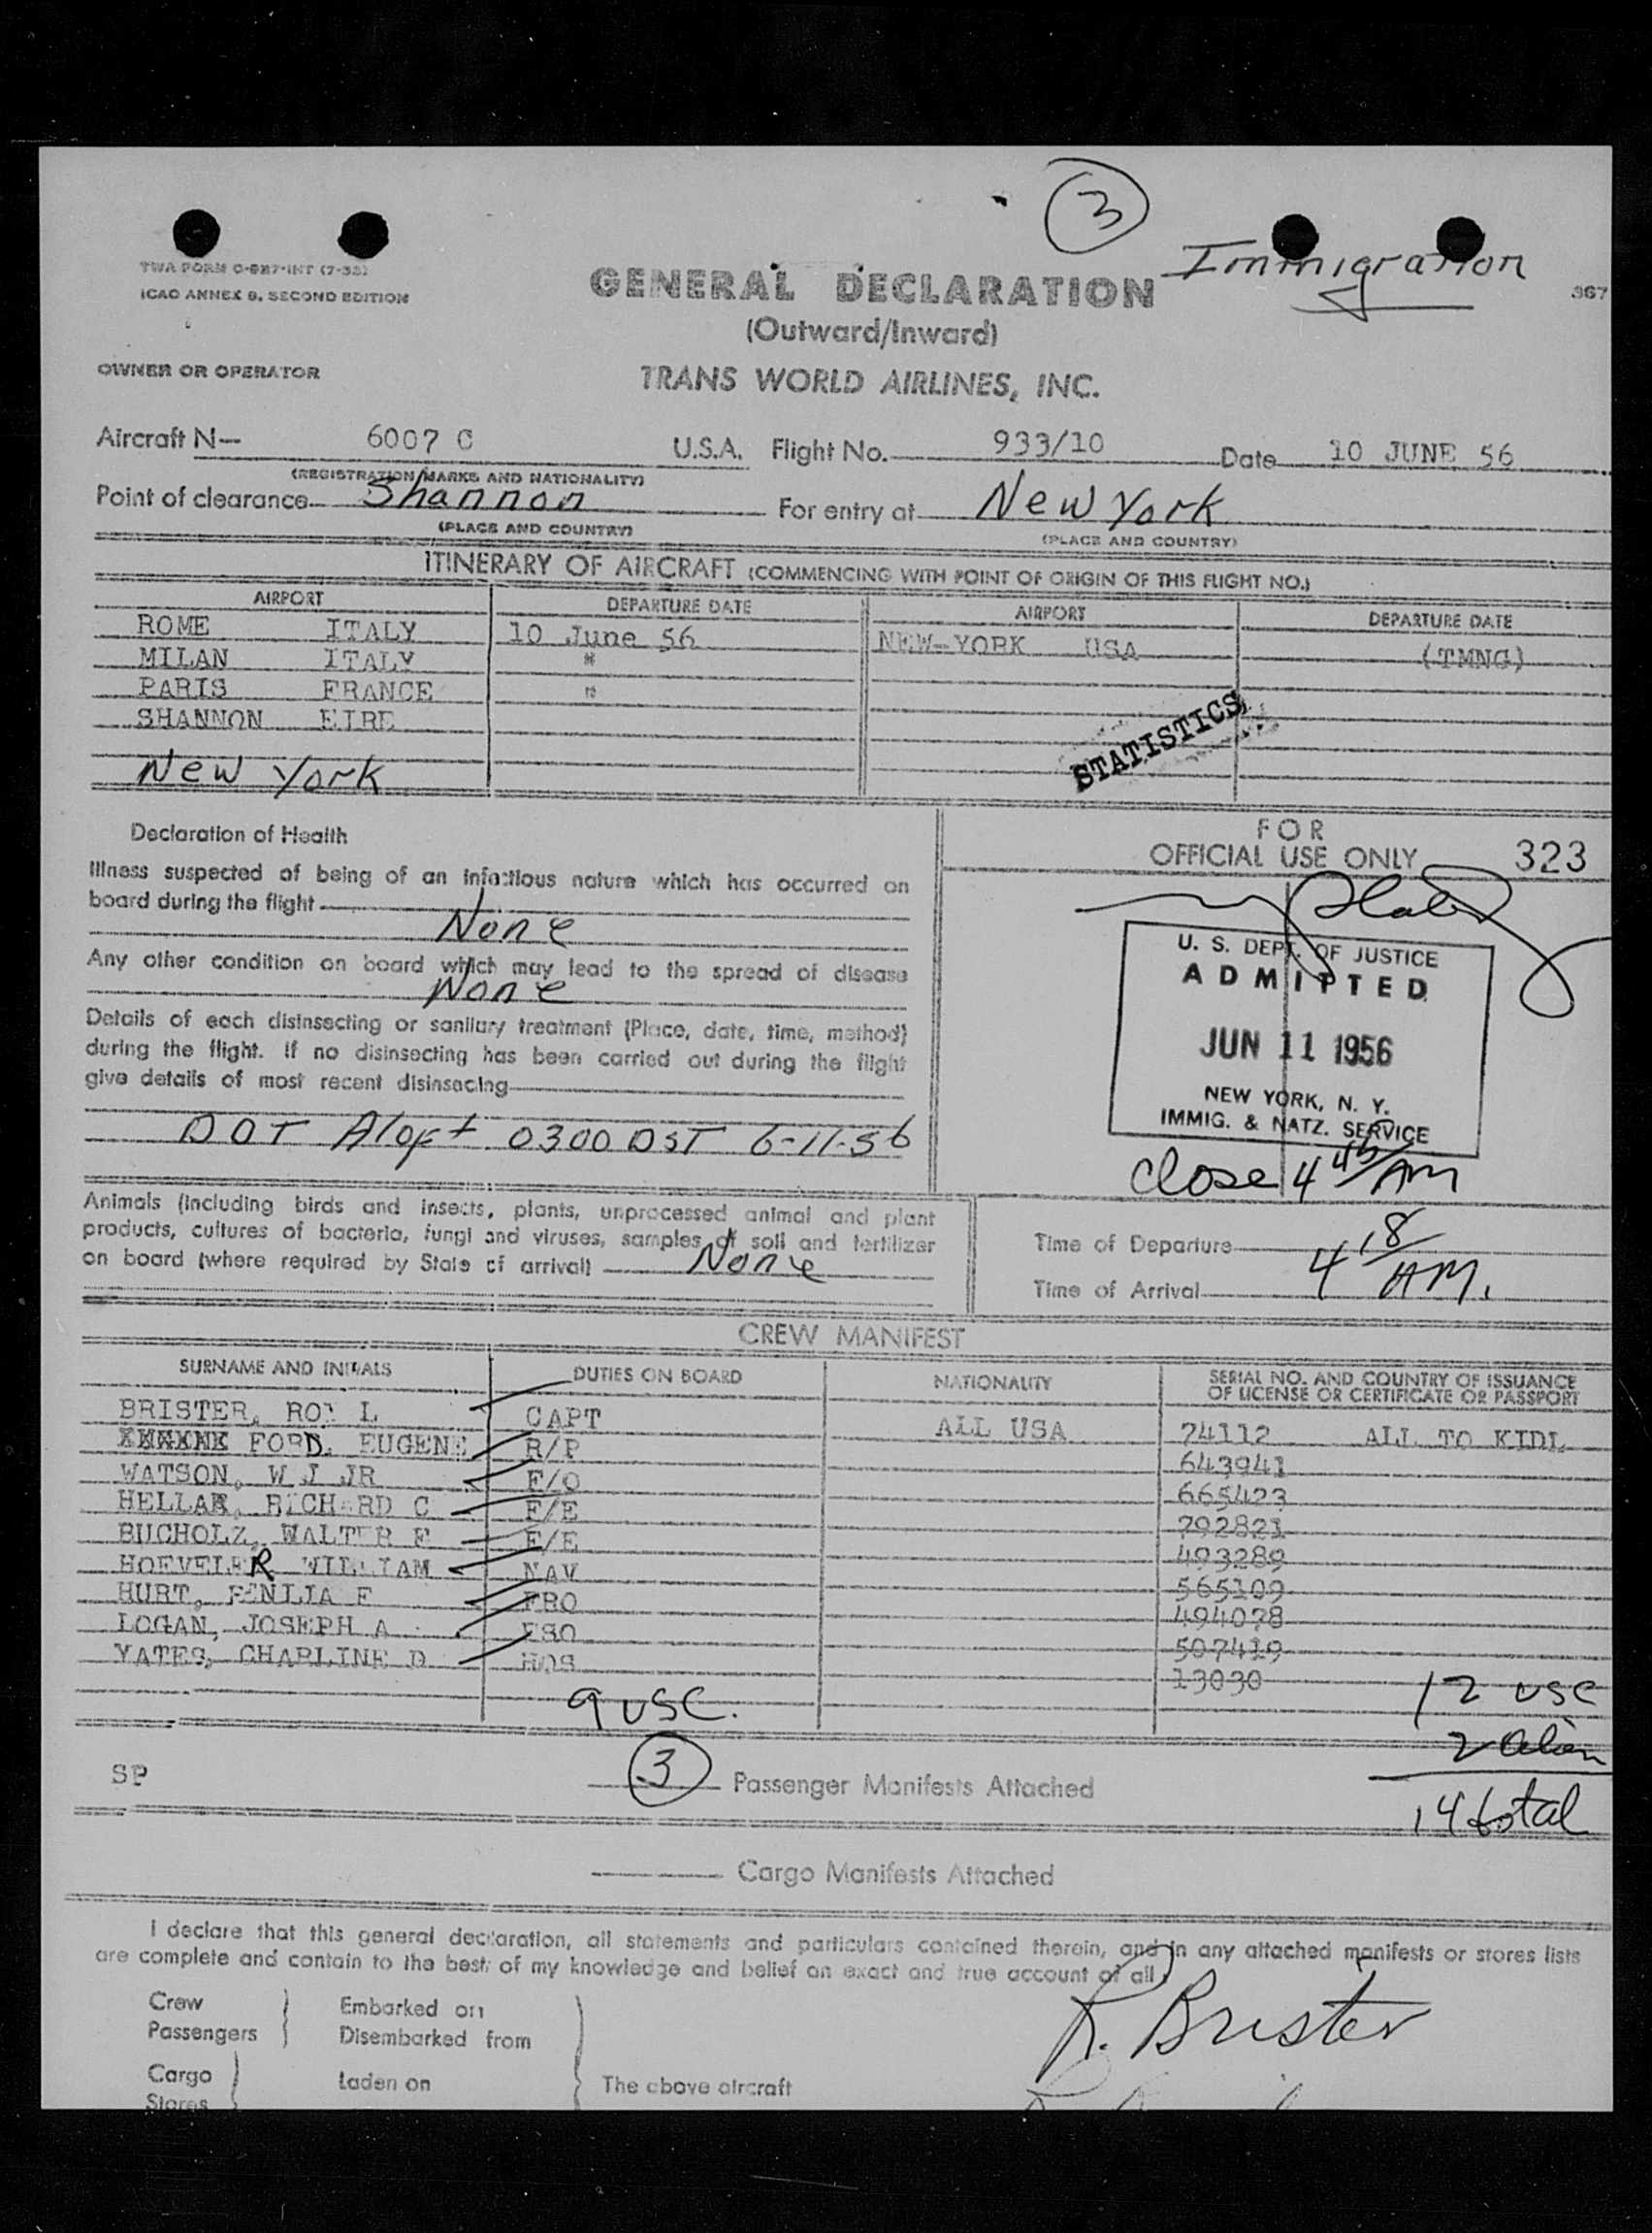 3
Immigration
TWA FORM
ICAO ANNEX 9, SECOND EDITION
367
GENERAL DECLARATION
(Outward/Inward)
OWNER OR OPERATOR
TRANS WORLD AIRLINES, INC.
Aircraft N— 6007 C U.S.A. Flight No. 933/10 Date 10 JUNE 56
(REGISTRATION MARKS AND NATIONALITY)
Point of clearance Shannon For entry at New York
(PLACE AND COUNTRY) (PLACE AND COUNTRY)
ITINERARY OF AIRCRAFT (COMMENCING WITH POINT OF ORIGIN OF THIS FLIGHT NO.)
AIRPORT DEPARTURE DATE AIRPORT DEPARTURE DATE
ROME ITALY 10 June 56 NEW-YORK USA (TMNG)
MILAN ITALY "
PARIS FRANCE "
SHANNON EIRE
New York
STATISTICS
Declaration of Health
Illness suspected of being of an infectious nature which has occurred on
board during the flight
None
Any other condition on board which may lead to the spread of disease
None
Details of each disinsecting or sanitary treatment (Place, date, time, method)
during the flight. If no disinsecting has been carried out during the flight
give details of most recent disinsecing
DDT Aloft 0300 DST 6-11-56
FOR
OFFICIAL USE ONLY 323
U. S. DEPT. OF JUSTICE
ADMITTED
JUN 11 1956
NEW YORK, N. Y.
IMMIG. & NATZ. SERVICE
Close 4 45 AM
Animals (including birds and insects, plants, unprocessed animal and plant
products, cultures of bacteria, fungi and viruses, samples of soil and fertilizer
on board (where required by State of arrival) None
Time of Departure
Time of Arrival 4 18 AM.
CREW MANIFEST
SURNAME AND INITIALS DUTIES ON BOARD NATIONALITY SERIAL NO. AND COUNTRY OF ISSUANCE
OF LICENSE OR CERTIFICATE OR PASSPORT
BRISTER, ROY L CAPT ALL USA 74112 ALL TO KIDL
FORD, EUGENE R/P 643941
WATSON, W J JR F/O 665423
HELLAR, RICHARD C F/E 792821
BUCHOLZ, WALTER F F/E 493289
HOEVELER WILLIAM NAV 565109
HURT, F FRO 494078
LOGAN, JOSEPH A FSO 507419
YATES, CHARLINE D HOS 13030
9 USC.
12 USC
2 Alien
14 total
SP
3 Passenger Manifests Attached
Cargo Manifests Attached
I declare that this general declaration, all statements and particulars contained therein, and in any attached manifests or stores lists
are complete and contain to the best of my knowledge and belief an exact and true account of all
Crew Embarked on
Passengers Disembarked from
Cargo Laden on The above aircraft
Stores
R. Brister